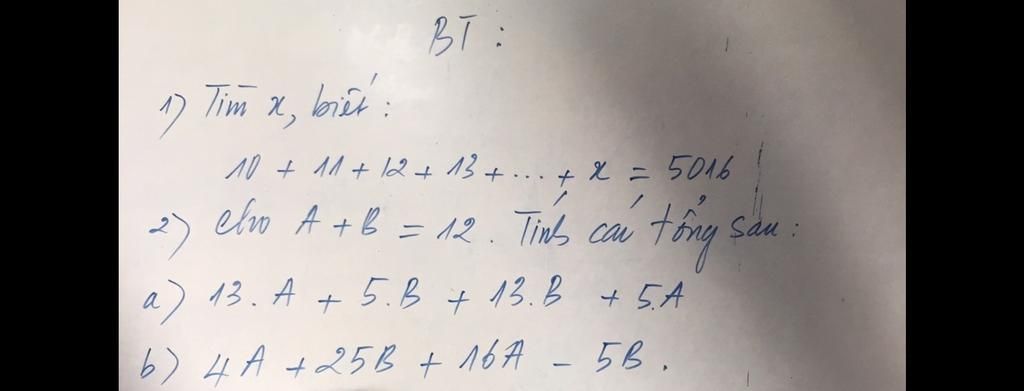 BT :
1) Tìm x, biết :
10 + 11 + 12 + 13 + ... + x = 5016
2) Cho A + B = 12 . Tính các tổng sau :
a) 13.A + 5.B + 13.B + 5.A
b) 4A + 25B + 16A - 5B .